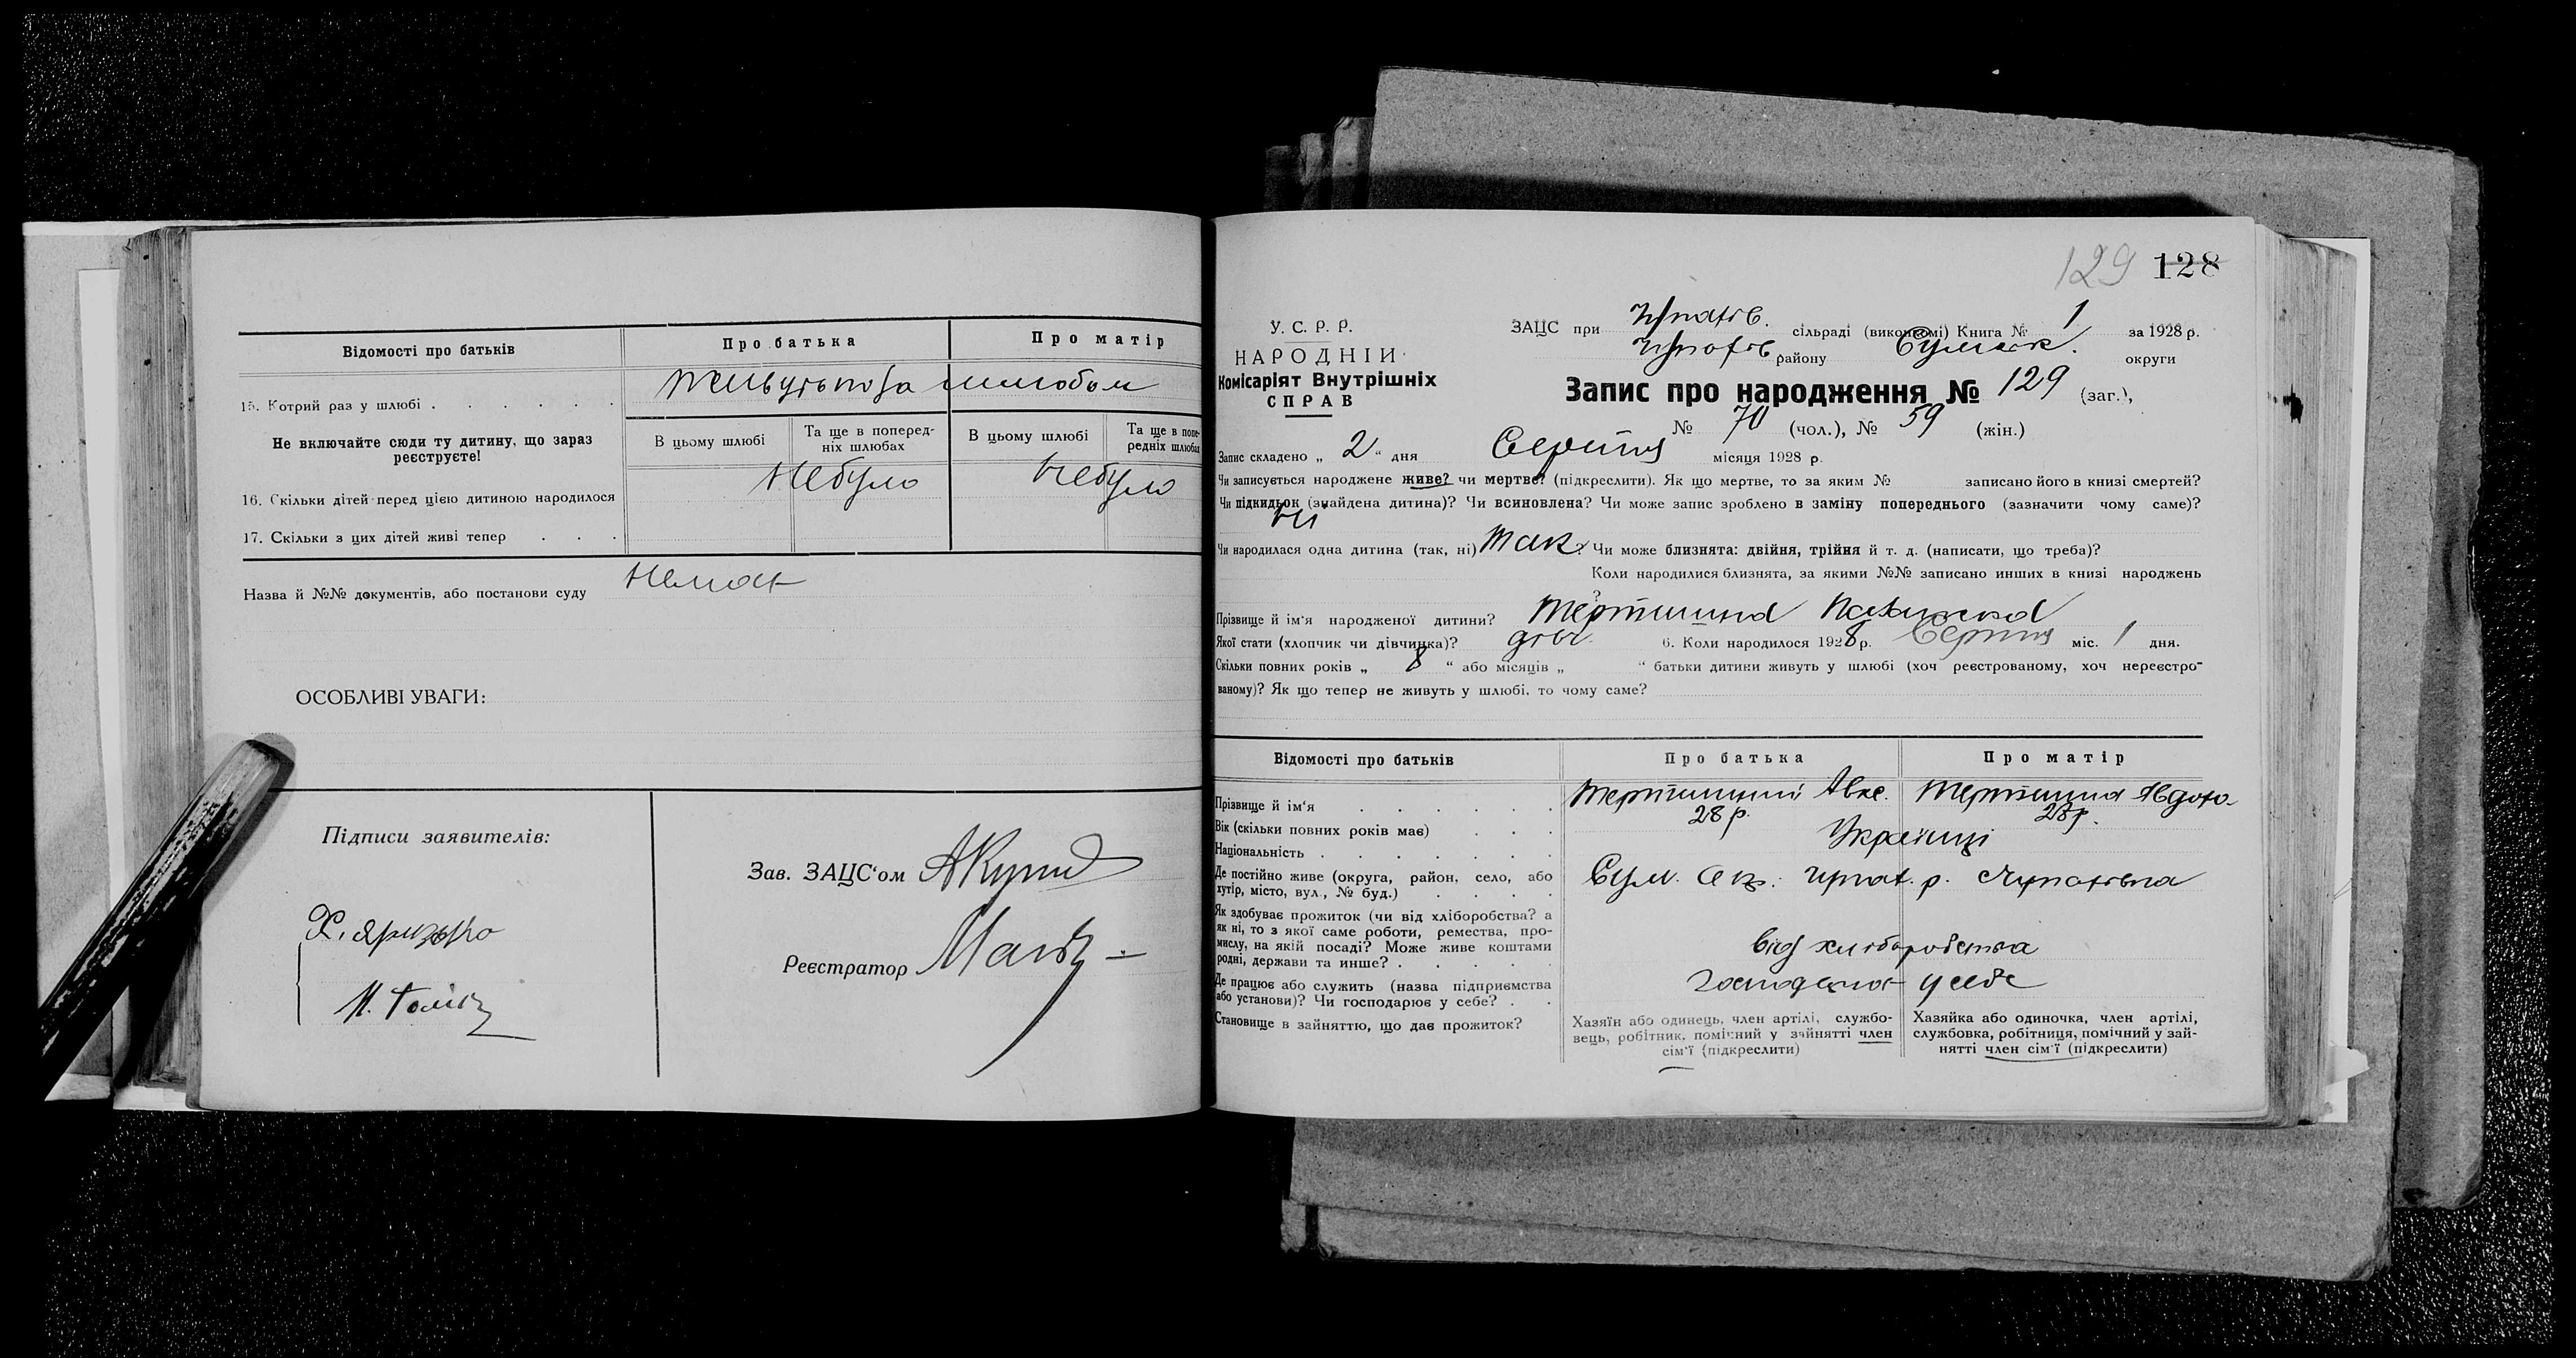 Відомості про батьків
Про батька
Про матір
15. Котрий раз у шлюбі
живуть поза шлюбом
Не включайте сюди ту дитину, що зараз реєструєте!
В цьому шлюбі
Та ще в поперед-
ніх шлюбах
В цьому шлюбі
Та ще в попе-
редніх шлюбах
16. Скільки дітей перед цією дитиною народилося
Небуло
Небуло
17. Скільки з цих дітей живі тепер
Назва й №№ документів, або постанови суду
Немає
ОСОБЛИВІ УВАГИ:
Підписи заявителів:
Зав. ЗАЦС'ом
Реєстратор
129 128
У. С. Р. Р.
НАРОДНІЙ
Комісаріят Внутрішніх
СПРАВ
ЗАЦС при сільраді (виконкомі) Книга № 1 за 1928 р.
району Сумськ. округи
Запис про народження № 129 (заг.),
№ 70 (чол.), № 59 (жін.)
Запис складено „ 2 “ дня Серпня місяця 1928 р.
Чи записується народжене живе? чи мертве? (підкреслити). Як що мертве, то за яким № записано його в книзі смертей?
Чи підкидьок (знайдена дитина)? Чи всиновлена? Чи може запис зроблено в заміну попереднього (зазначити чому саме)?
ні
Чи народилася одна дитина (так, ні) Так ? Чи може близнята: двійня, трійня й т. д. (написати, що треба)?
Коли народилися близнята, за якими №№ записано инших в книзі народжень
?
Прізвище й ім'я народженої дитини? Тертишна
Якої стати (хлопчик чи дівчинка)? дівч. 6. Коли народилося 1928 р. Серпня міс. 1 дня.
Скільки повних років „ 8 “ або місяців „ “ батьки дитини живуть у шлюбі (хоч реєстрованому, хоч нереєстро-
ваному)? Як що тепер не живуть у шлюбі, то чому саме?
Відомості про батьків
Про батька
Про матір
Прізвище й ім'я
Тертишний Авкс.
Тертишна Явдоха
Вік (скільки повних років має)
28 р.
28 р.
Національність
Українці
Де постійно живе (округа, район, село, або
хутір, місто, вул., № буд.)
Сум. окр.
Як здобуває прожиток (чи від хліборобства? а
як ні, то з якої саме роботи, ремества, про-
мислу, на якій посаді? Може живе коштами
родні, держави та инше?
від хліборобства
Де працює або служить (назва підприємства
або установи)? Чи господарює у себе?
у себе
Становище в зайняттю, що дає прожиток?
Хазяїн або одинець, член артілі, службо-
вець, робітник, помічний у зайнятті член
сім'ї (підкреслити)
Хазяйка або одиночка, член артілі,
службовка, робітниця, помічний у зай-
нятті член сім'ї (підкреслити)